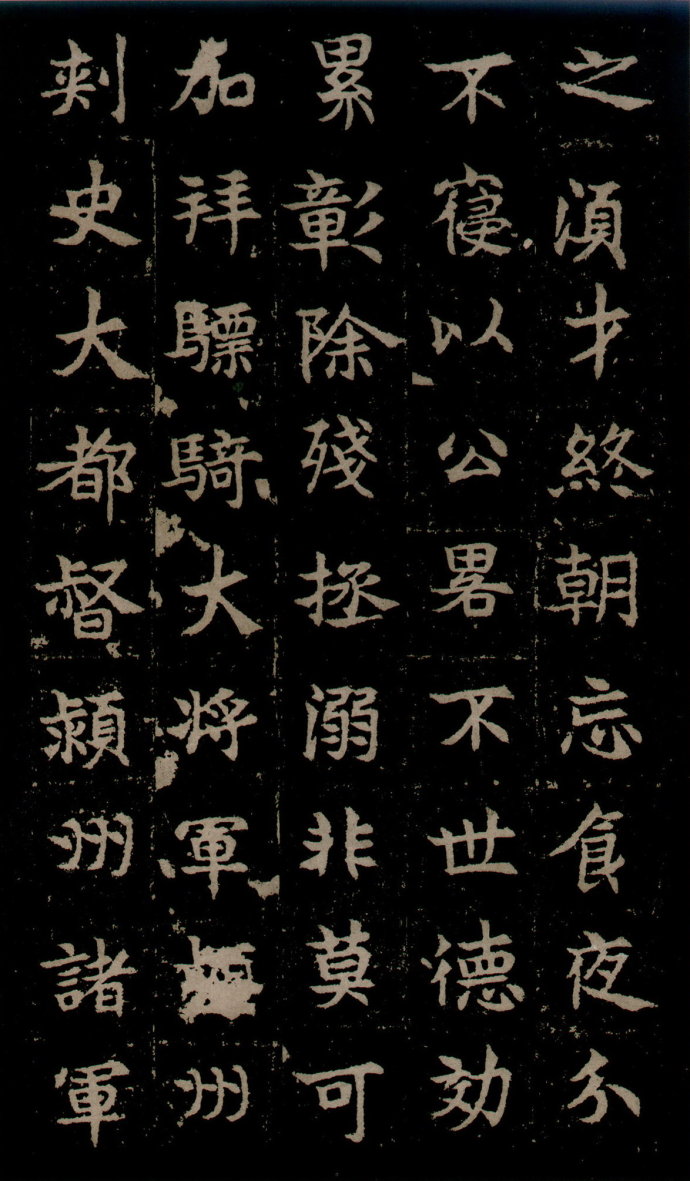 之湏才終朝忘食夜分
不寢以公畧不世德効
累彰除殘拯溺非莫可
加拜驃騎大将軍州
刺史大都督潁州諸軍